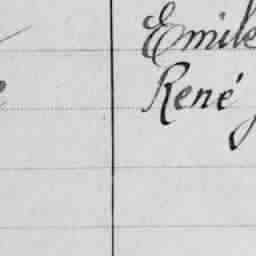 Emile
René